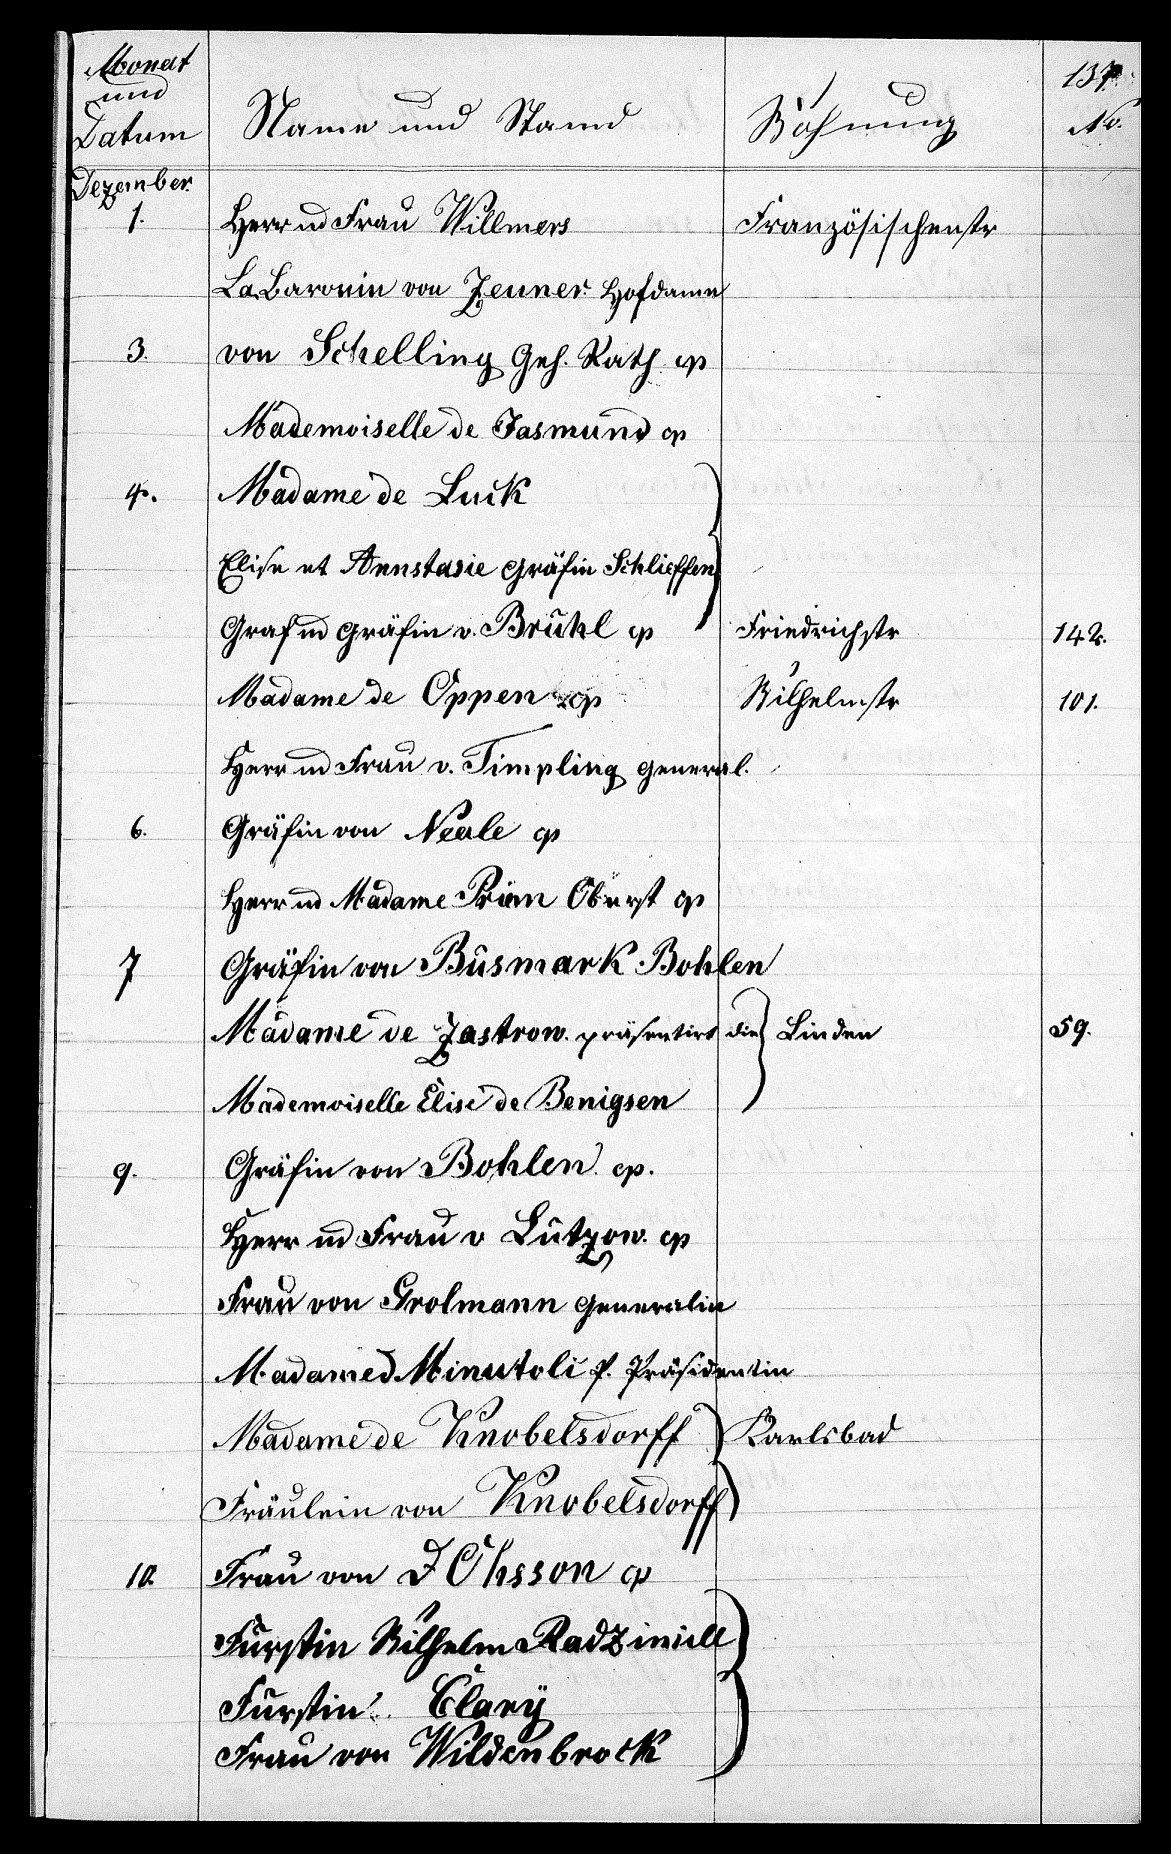 137.
Monat und Datum Name und Stand Wohnung No.
Dezember.
1. Herr und Frau Willmers Französischenstr
La Baronin von Zeuner Hofdame
3. von Schelling Geh. Rath cp
Mademoiselle de Jasmund cp
4. Madame de Luck
Elise et Annstasie Gräfin Schlieffen
Graf und Gräfin v. Brühl cp Friedrichstr 142.
Madame de Oppen cp Wilhelmstr 101.
Herr und Frau v. Timpling General.
6. Gräfin von Neale cp
Herr und Madame Prim Oberst cp
7 Gräfin von Büsmark-Bohlen
Madame de Zastrow. präsentirt die Linden 59.
Mademoiselle Elise de Benigsen
9. Gräfin von Bohlen cp.
Herr und Frau v Lützow. cp
Frau von Grolmann Generalin
Madame d Minutoli P. Präsidentin
Madame de Knobelsdorff Karlsbad
Fräulein von Knobelsdorff
10. Frau von D Ohsson cp
Fürstin Wilhelm Radziwill
Fürstin Clary
Frau von Wildenbrock